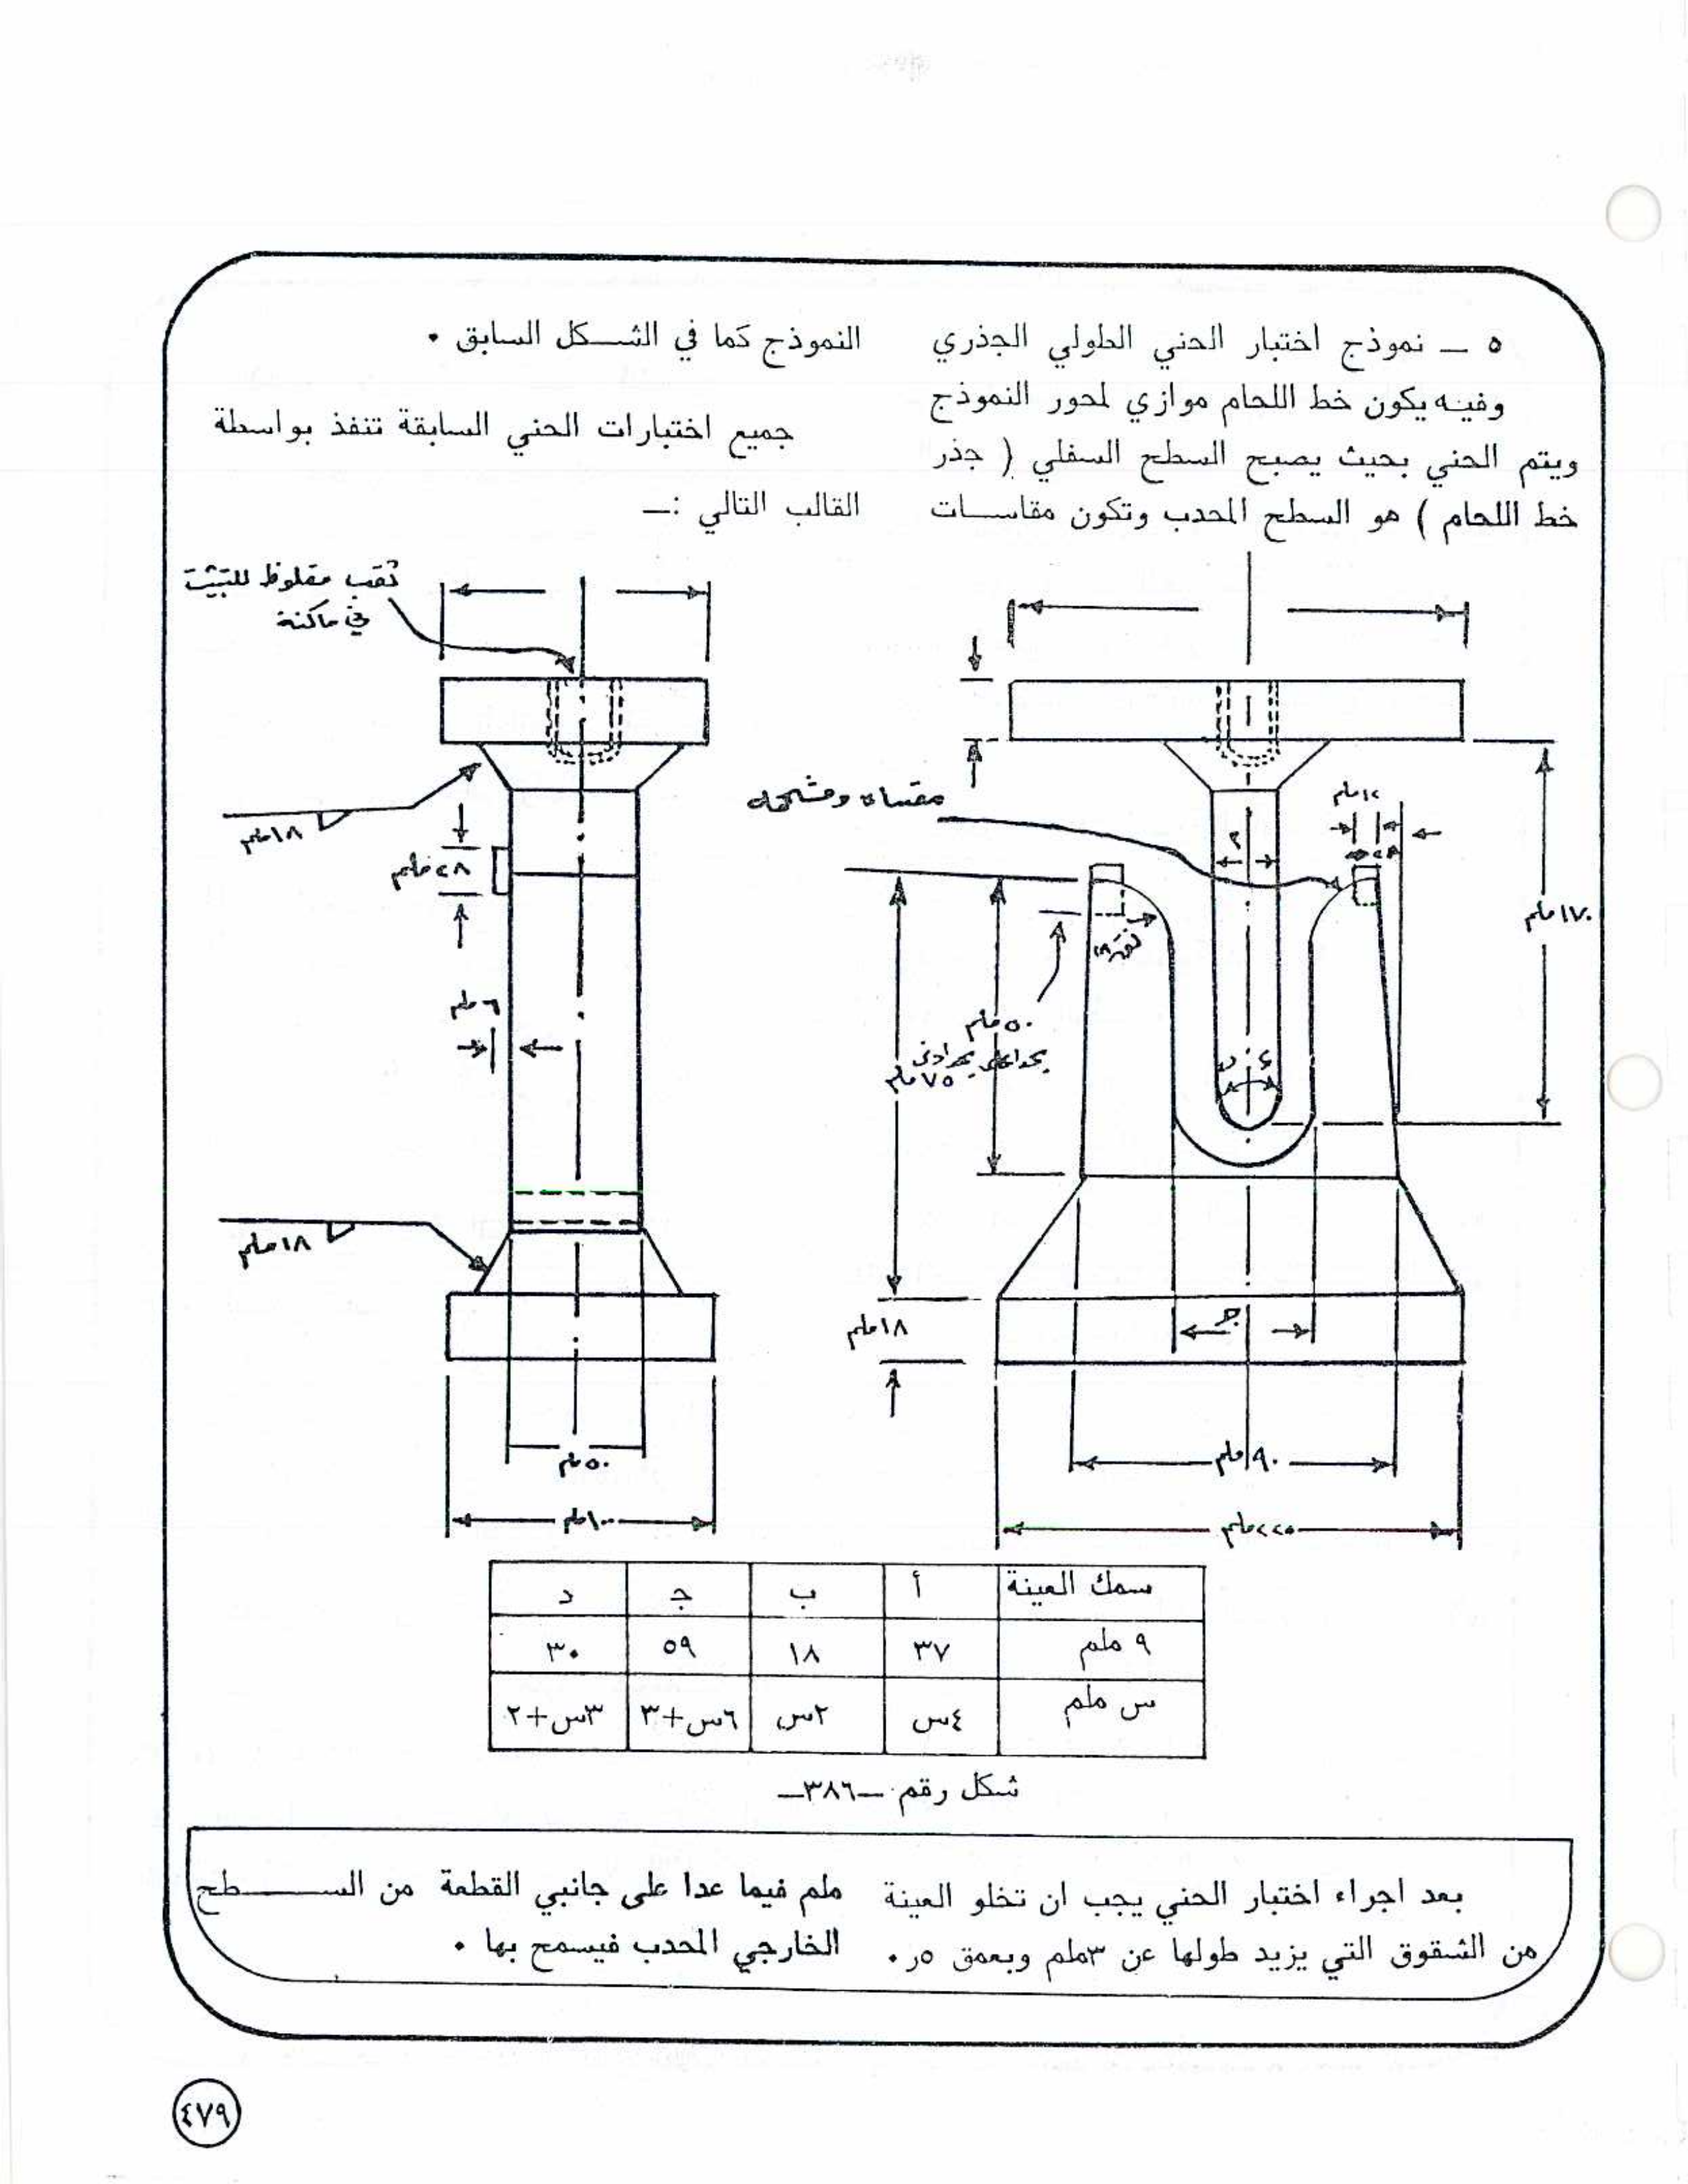 ٥ ــ نموذج اختبار الحني الطولي الجذري
وفيه يكون خط اللحام موازي لمحور النموذج
ويتم الحني بحيث يصبح السطح السفلي ( جذر
خط اللحام ) هو السطح المحدب وتكون مقاسـات
النموذج كما في الشـكل السابق .
جميع اختبارات الحني السابقة تنفذ بواسطة
القالب التالي :ــ
ثقب مقلوظ للتثبيت
في ماكنة
١٨ملم
٢٨ملم
٦ملم
١٨ملم
٥٠ملم
١٠٠ملم
مقساه ومشحمه
١٢ملم
١٧٠ملم
٥٠ملم
٧٥ملم
١٨ملم
ج
٩٠ملم
٢٢٥ملم
سمك العينة أ ب جـ د
٩ ملم ٣٧ ١٨ ٥٩ ٣٠
س ملم ٤س ٢س ٦س+٣ ٣س+٢
شكل رقم ــ٣٨٦ــ
بعد اجراء اختبار الحني يجب ان تخلو العينة
من الشقوق التي يزيد طولها عن ٣ملم وبعمق ٥ر٠
ملم فيما عدا على جانبي القطعة من السـطح
الخارجي المحدب فيسمح بها .
٤٧٩